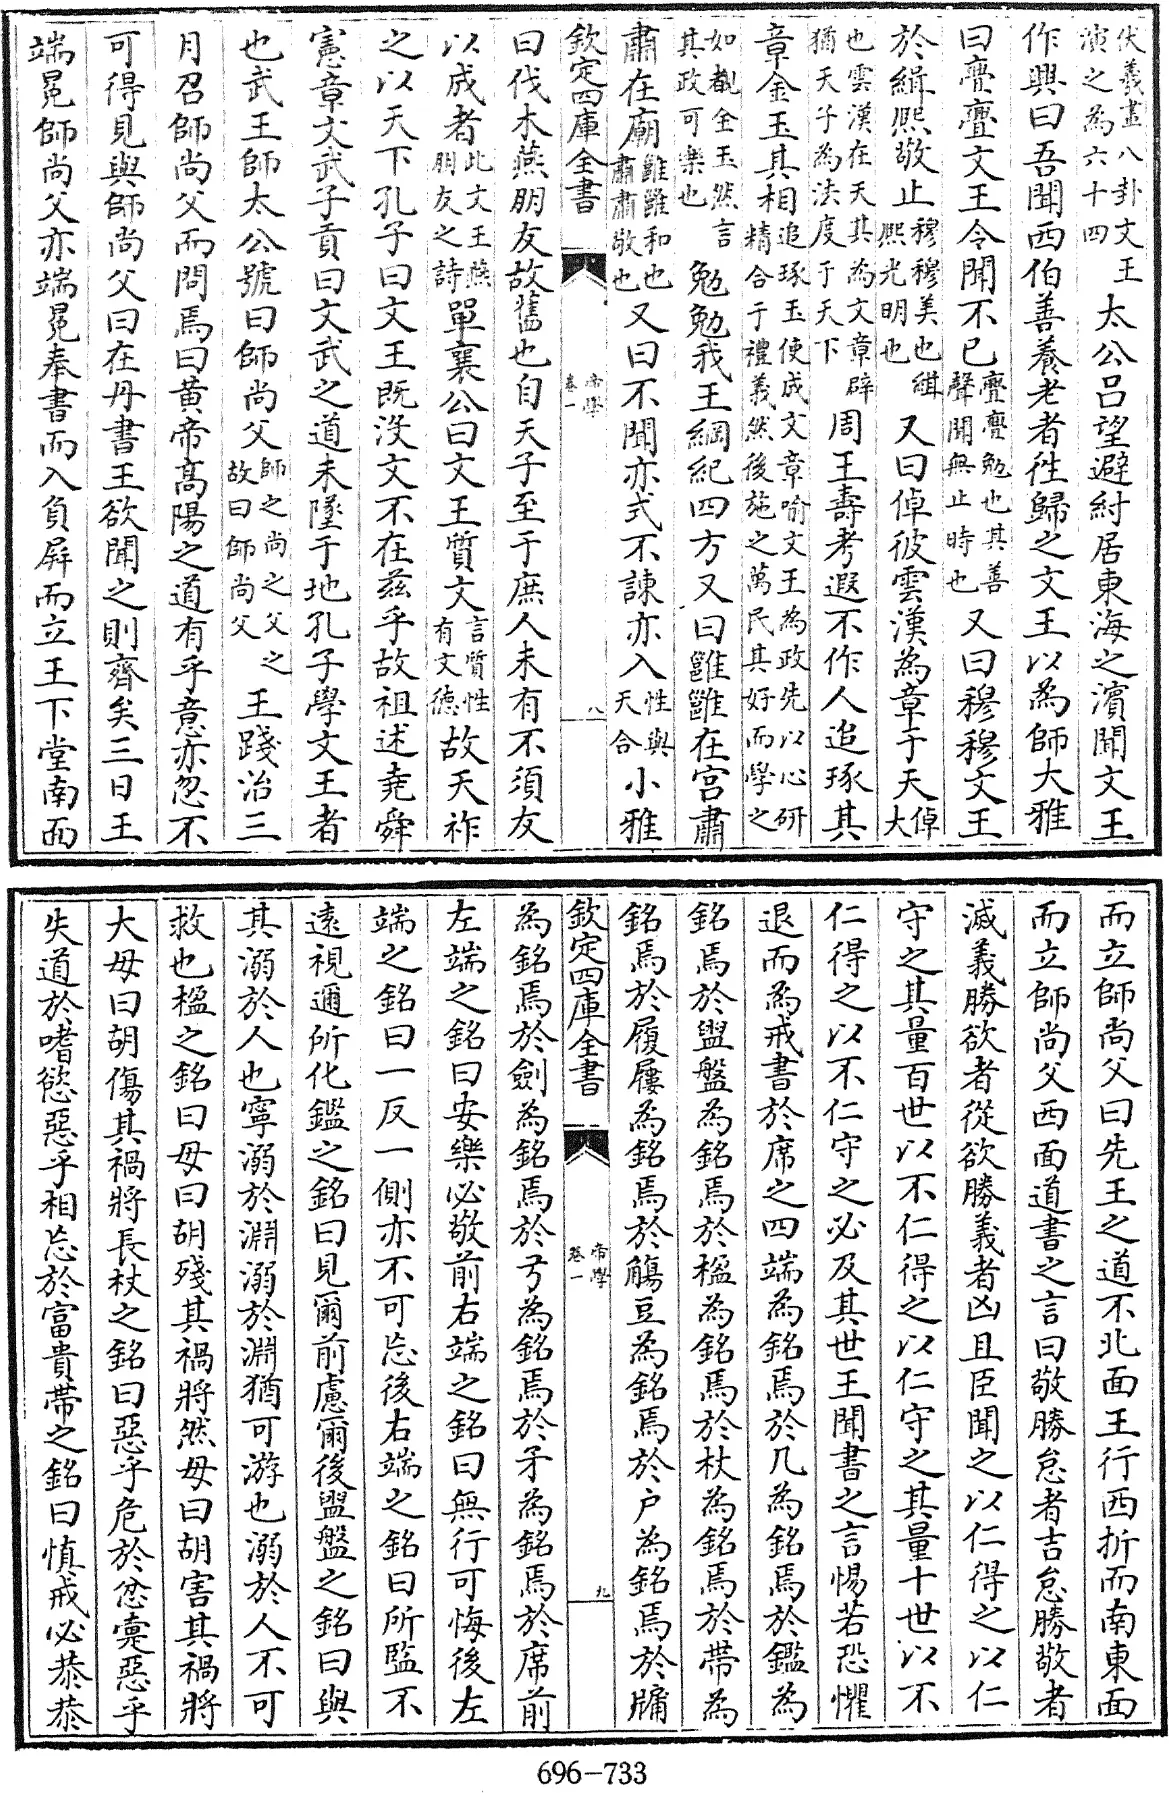 伏羲畫八卦文王演之為六十四太公呂望避紂居東海之濱聞文王
作興曰吾聞西伯善養老者徃歸之文王以為師大雅
曰亹亹文王令聞不已亹亹勉也其善聲聞無止時也又曰穆穆文王
於緝熙敬止穆穆美也緝熙光明也又曰倬彼雲漢為章于天倬大
也雲漢在天其為文章辟猶天子為法度于天下周王壽考遐不作人追琢其
章金玉其相追琢玉使成文章喻文王為政先以心研精合于禮義然後施之萬民其好而學之
如覩金玉然言其政可樂也勉勉我王綱紀四方又曰雝雝在宮肅
肅在廟雝雝和也肅肅敬也又曰不聞亦式不諫亦入性與天合小雅
欽定四庫全書
帝學
卷一
八
曰伐木燕朋友故舊也自天子至于庶人未有不須友
以成者此文王燕朋友之詩單襄公曰文王質文言質性有文德故天祚
之以天下孔子曰文王既沒文不在茲乎故祖述堯舜
憲章文武子貢曰文武之道未墜于地孔子學文王者
也武王師太公號曰師尚父師之尚之父之故曰師尚父王踐治三
月召師尚父而問焉曰黃帝高陽之道有乎意亦忽不
可得見與師尚父曰在丹書王欲聞之則齊矣三日王
端冕師尚父亦端冕奉書而入負屏而立王下堂南面
而立師尚父曰先王之道不北面王行西折而南東面
而立師尚父西面道書之言曰敬勝怠者吉怠勝敬者
滅義勝欲者從欲勝義者凶且臣聞之以仁得之以仁
守之其量百世以不仁得之以仁守之其量十世以不
仁得之以不仁守之必及其世王聞書之言惕若恐懼
退而為戒書於席之四端為銘焉於几為銘焉於鑑為
銘焉於盥盤為銘焉於楹為銘焉於杖為銘焉於帶為
銘焉於履屨為銘焉於觴豆為銘焉於户為銘焉於牖
欽定四庫全書
帝學
卷一
九
為銘焉於劍為銘焉於弓為銘焉於矛為銘焉於席前
左端之銘曰安樂必敬前右端之銘曰無行可悔後左
端之銘曰一反一側亦不可忘後右端之銘曰所監不
遠視邇所化鑑之銘曰見爾前慮爾後盥盤之銘曰與
其溺於人也寧溺於淵溺於淵猶可游也溺於人不可
救也楹之銘曰毋曰胡殘其禍將然毋曰胡害其禍將
大毋曰胡傷其禍將長杖之銘曰惡乎危於忿疐惡乎
失道於嗜慾惡乎相忘於富貴帶之銘曰慎戒必恭恭
696-733